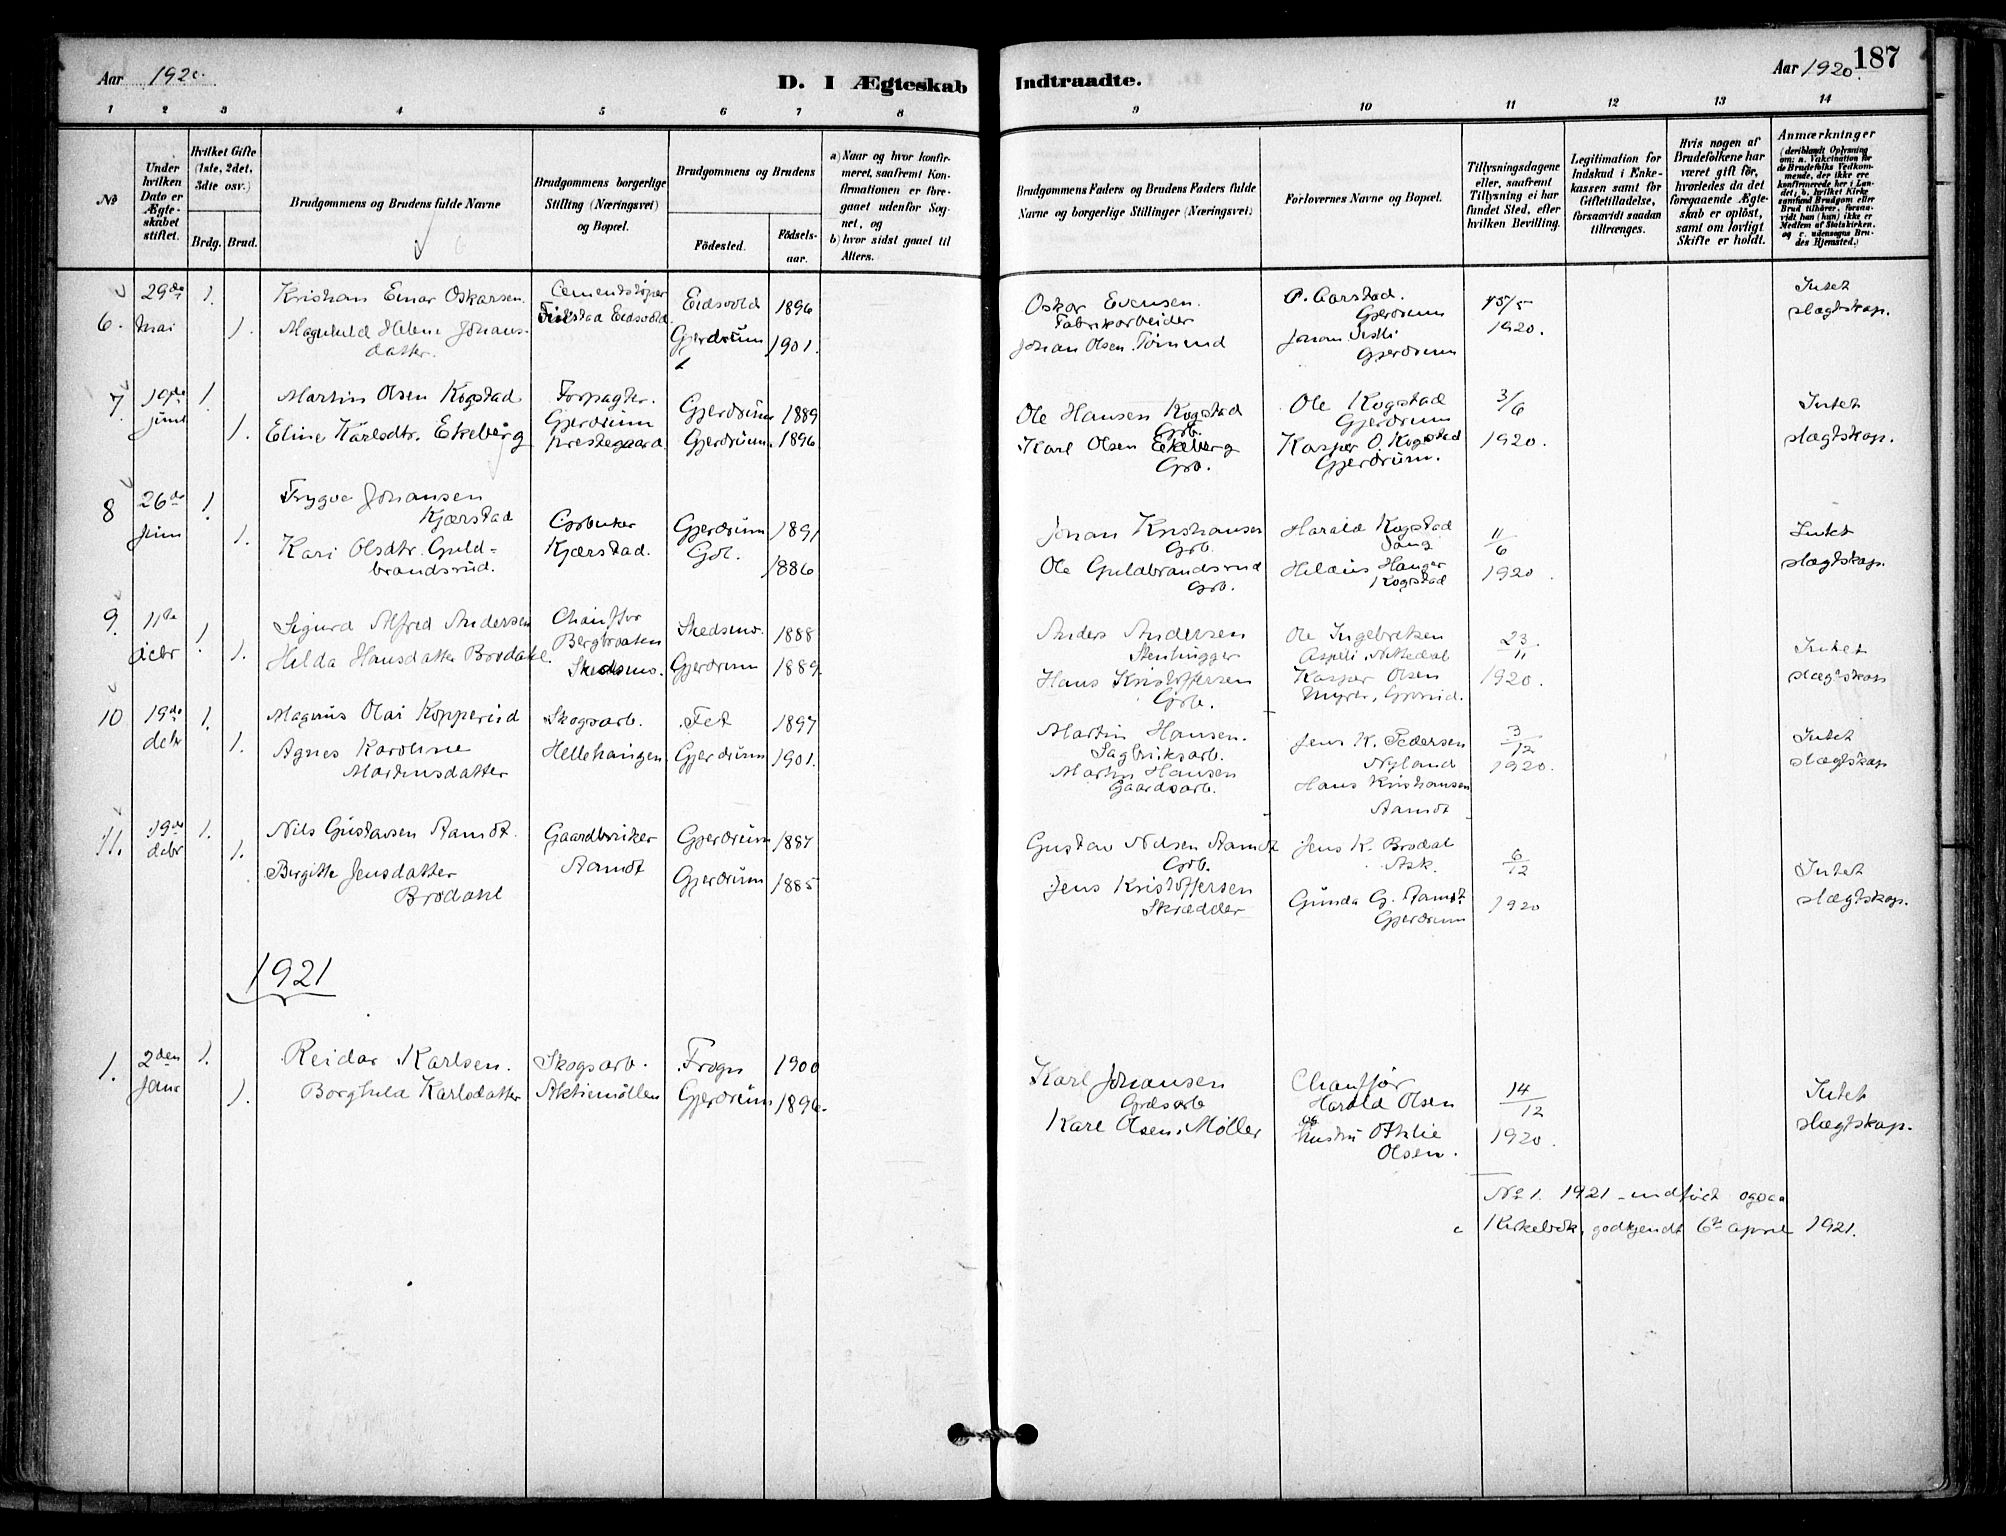 Aar 1920.
D. I Ægteskab
Indtraadte.
Aar 1920.
187
1 2 3 4 5 6 7 8
9 10 11 12 13 14
No
Under hvilken Dato er Ægteskabet stiftet.
Hvilket Gifte (1ste, 2det, 3dte osv.)
Brdg. Brud.
Brudgommens og Brudens fulde Navne
Brudgommens borgerlige Stilling (Næringsvei) og Bopæl.
Brudgommens og Brudens
Födested.
Födselsaar.
a) Naar og hvor konfirmeret, saafremt Konfirmationen er foregaaet udenfor Sognet, og
b) hvor sidst gaaet til Alters.
Brudgommens Faders og Brudens Faders fulde Navne og borgerlige Stillinger (Næringsvei)
Forlovernes Navne og Bopæl.
Tillysningsdagene eller, saafremt Tillysning ei har fundet Sted, efter hvilken Bevilling.
Legitimation for Indskud i Enkekassen samt for Giftetilladelse, forsaavidt saadan tiltrænges.
Hvis nogen af Brudefolkene har været gift för, hvorledes da det foregaaende Ægteskab er oplöst, samt om lovligt Skifte er holdt.
Anmærkninger
(deriblandt Oplysning om: a. Vakcination for de Brudefolks Vedkommende, der ikke ere konfirmerede her i Landet, b. hvilket Kirkesamfund Brudgom eller Brud tilhører, forsaavidt han (hun) ikke er Medlem af Statskirken, og c. udensogns Brudes Hjemsted.)
6. 29de mai 1. Kristian Einar Oskarsen. Cementstøper Eidsvold 1896
Eidsvold
1. Magnhild Helene Johansdatter. Gjerdrum 1901.
Oskar Evensen. Fabrikarbeider
Johan Olsen
P. Aarstad. Gjerdrum
Johan
Gjerdrum
15/5 1920.
Intet slægtskap.
7 19de juni 1. Martin Olsen Kogstad Forpagter. Gjerdrum 1889
1. Eline Karlsdtr. Ekeberg Gjerdrum prestegaard. Gjerdrum. 1896
Ole Hansen Kogstad Grb.
Karl Olsen Ekeberg Grb.
Ole Kogstad Gjerdrum
Kasper O. Kogstad Gjerdrum.
3/6 1920.
Intet slægtskap.
8 26de juni 1. Trygve Johansen Kjærstad Grbruker Gjerdrum 1891
1. Kari Olsdtr. Guldbrandsrud. Kjærstad. Gol. 1886
Johan Kristiansen Grb.
Ole Guldbrandsrud Grb.
Harald Kogstad
Hanger Kogstad
11/6 1920.
Intet slægtskap.
9. 11te debr 1. Sigurd Alfred Andersen Chauffør Skedsmo. 1888
1. Hilda Hansdatter Brodahl. Bergbraaten Skedsmo. Gjerdrum 1889.
Anders Andersen Stenhugger
Hans Kristoffersen Grb.
Ole Ingebretsen Nittedal
Kasper Olsen
23/11 1920.
Intet slægtskap
10 19de debr 1. Magnus Olai Kopperud Skogsarb. Fet 1897
1. Agnes Karoline Martinsdatter Hellehaugen. Gjerdrum 1901.
Martin Hansen. Sagbruksarb.
Martin Hansen Gaardsarb.
Jens K. Pedersen Nyland
Hans Kristiansen Aamodt
3/12 1920.
Intet slægtskap
11. 19de debr 1. Nils Gustavsen Aamdt. Gaardbruker Aamdt Gjerdrum 1887
1. Birgitte Jensdatter Brodahl Gjerdrum 1885
Gustav Nilsen Aamdt Grb.
Jens Kristoffersen Skrædder
Jens K. Brodal Ask.
Gunda G. Aamdt Gjerdrum
6/12 1920
Intet slægtskap.
1921
1. 2den janr 1. Reidar Karlsen. Skogsarb. Frogn 1900
1. Borghild Karlsdatter Aktiemøllen Gjerdrum 1896.
Karl Johansen
Karl Olsen, Møller
Chauffør Harald Olsen
og hustru Othlie Olsen.
14/12 1920.
Intet slægtskap.
No 1. 1921 indført ogsaa
i Kirkebok, godkjendt 6te april 1921.